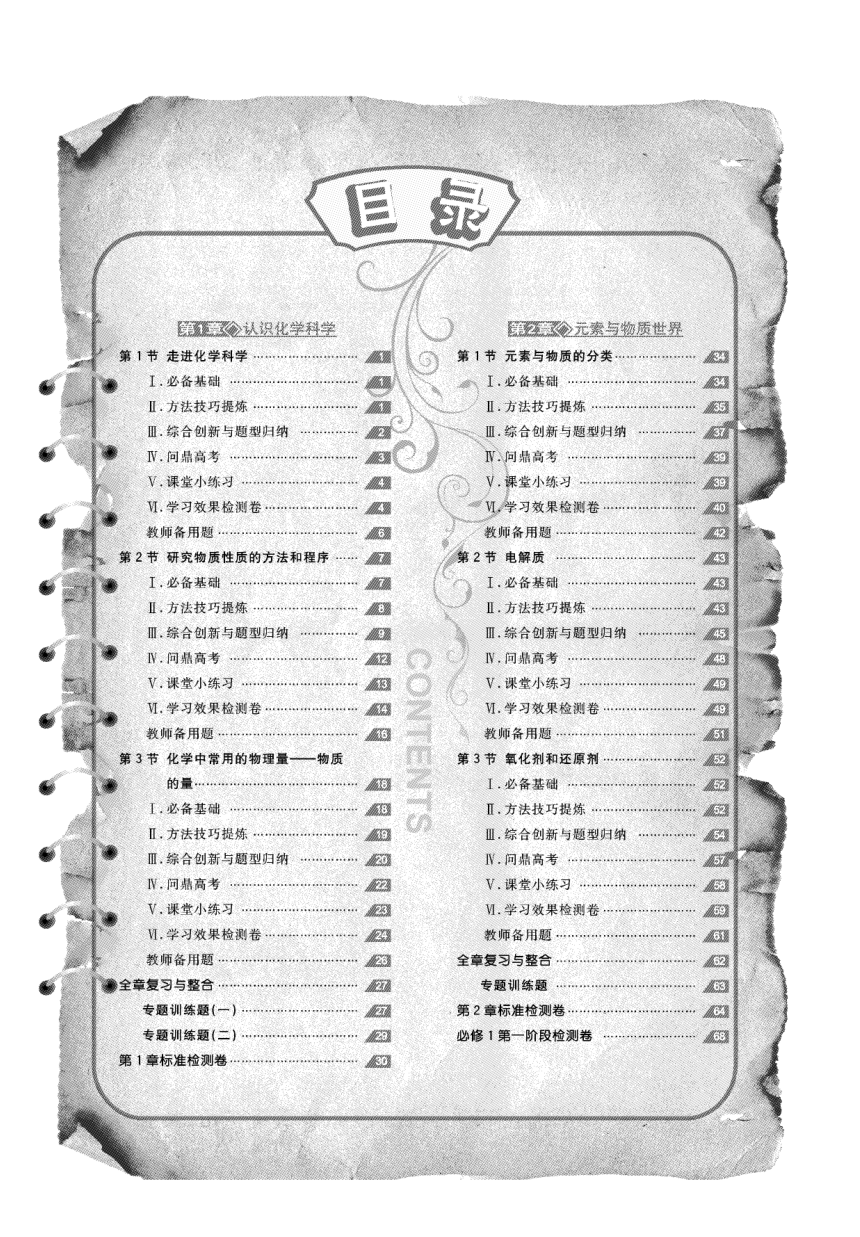 目录
第1章 认识化学科学
第1节 走进化学科学 1
Ⅰ.必备基础 1
Ⅱ.方法技巧提炼 1
Ⅲ.综合创新与题型归纳 2
Ⅳ.问鼎高考 3
Ⅴ.课堂小练习 4
Ⅵ.学习效果检测卷 4
教师备用题 6
第2节 研究物质性质的方法和程序 7
Ⅰ.必备基础 7
Ⅱ.方法技巧提炼 8
Ⅲ.综合创新与题型归纳 9
Ⅳ.问鼎高考 12
Ⅴ.课堂小练习 13
Ⅵ.学习效果检测卷 14
教师备用题 16
第3节 化学中常用的物理量——物质
的量 18
Ⅰ.必备基础 18
Ⅱ.方法技巧提炼 19
Ⅲ.综合创新与题型归纳 20
Ⅳ.问鼎高考 22
Ⅴ.课堂小练习 23
Ⅵ.学习效果检测卷 24
教师备用题 26
全章复习与整合 27
专题训练题(一) 27
专题训练题(二) 29
第1章标准检测卷 30
CONTENTS
第2章 元素与物质世界
第1节 元素与物质的分类 34
Ⅰ.必备基础 34
Ⅱ.方法技巧提炼 35
Ⅲ.综合创新与题型归纳 37
Ⅳ.问鼎高考 39
Ⅴ.课堂小练习 39
Ⅵ.学习效果检测卷 40
教师备用题 42
第2节 电解质 43
Ⅰ.必备基础 43
Ⅱ.方法技巧提炼 43
Ⅲ.综合创新与题型归纳 45
Ⅳ.问鼎高考 48
Ⅴ.课堂小练习 49
Ⅵ.学习效果检测卷 49
教师备用题 51
第3节 氧化剂和还原剂 52
Ⅰ.必备基础 52
Ⅱ.方法技巧提炼 52
Ⅲ.综合创新与题型归纳 54
Ⅳ.问鼎高考 57
Ⅴ.课堂小练习 58
Ⅵ.学习效果检测卷 59
教师备用题 61
全章复习与整合 62
专题训练题 63
第2章标准检测卷 64
必修1第一阶段检测卷 68